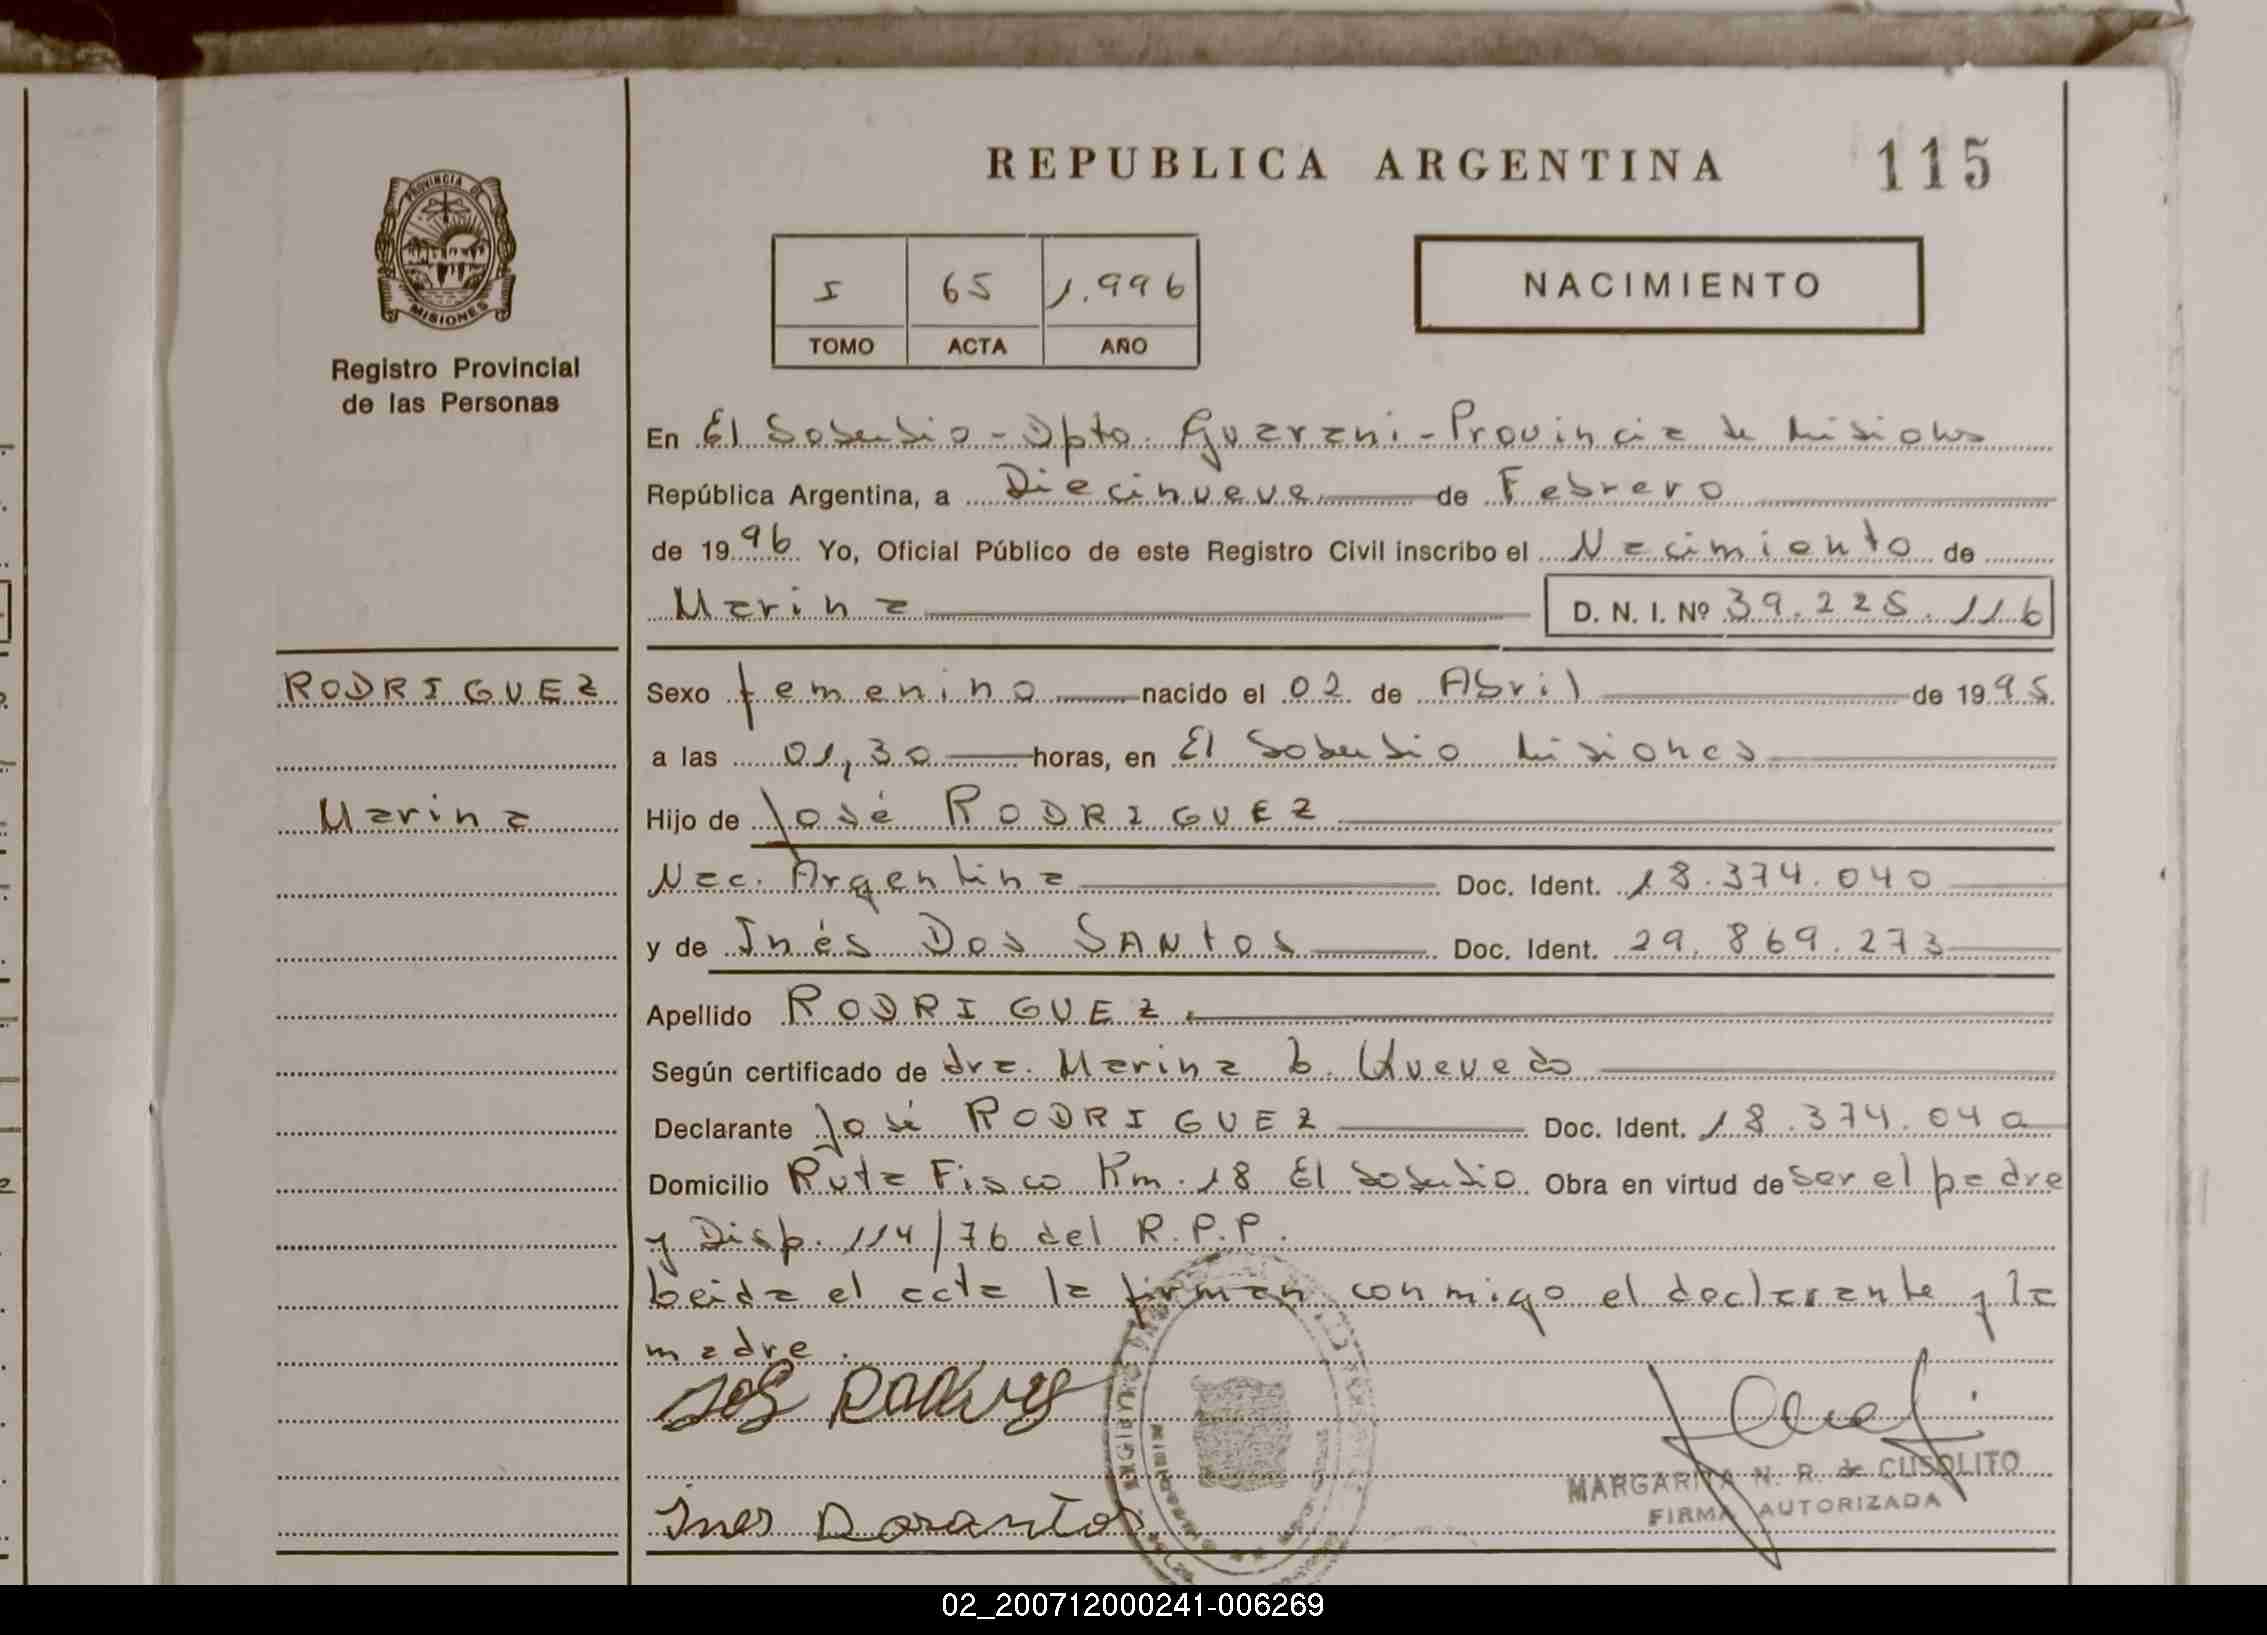 REPUBLICA ARGENTINA
115
PROVINCIA DE
MISIONES
Registro Provincial
de las Personas
I 65 1.996
TOMO ACTA AÑO
NACIMIENTO
En El Soberbio - Dpto. Guarani - Provincia de Misiones
República Argentina, a Diecinueve de Febrero
de 1996 Yo, Oficial Público de este Registro Civil inscribo el Nacimiento de
Marina D. N. I. Nº 39.225.116
RODRIGUEZ
Marina
Sexo femenino nacido el 02 de Abril de 1995
a las 01,30 horas, en El Soberbio Misiones
Hijo de José RODRIGUEZ
Nac. Argentina Doc. Ident. 18.374.040
y de Inés Dos SANtos Doc. Ident. 29.869.273
Apellido RODRIGUEZ.
Según certificado de dra. Marina
Declarante José RODRIGUEZ Doc. Ident. 18.374.040
Domicilio Ruta Fisco Km. 18 El Soberbio Obra en virtud de ser el padre
y Disp. 114/76 del R.P.P.
Leida el acta la firman conmigo el declarante y la
madre.
Ines Dosantos
MARGARITA N. R. de CUSOLITO
FIRMA AUTORIZADA
02_200712000241-006269